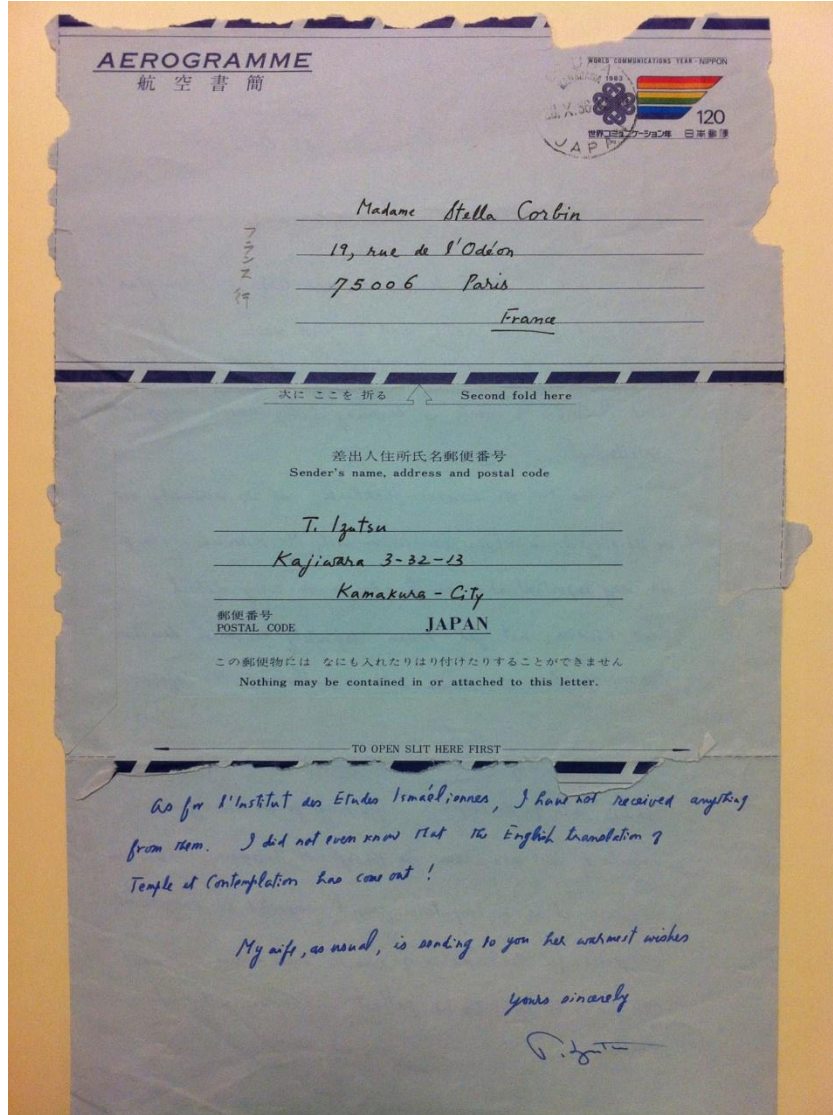 AEROGRAMME
航空書簡
WORLD COMMUNICATIONS YEAR - NIPPON
1983
120
世界コミュニケーション年 日本郵便
JAPAN
Madame Stella Corbin
19, rue de l'Odéon
75006 Paris
France
フランス行
次に ここを 折る Second fold here
差出人住所氏名郵便番号
Sender's name, address and postal code
T. Izutsu
Kajiwara 3-32-13
Kamakura - City
郵便番号
POSTAL CODE JAPAN
この郵便物には なにも入れたりはり付けたりすることができません
Nothing may be contained in or attached to this letter.
TO OPEN SLIT HERE FIRST
As for l'Institut des Etudes Ismaéliennes, I have not received anything
from them. I did not even know that the English translation of
Temple et Contemplation has come out !
My wife, as usual, is sending to you her warmest wishes
yours sincerely
T. Izutsu